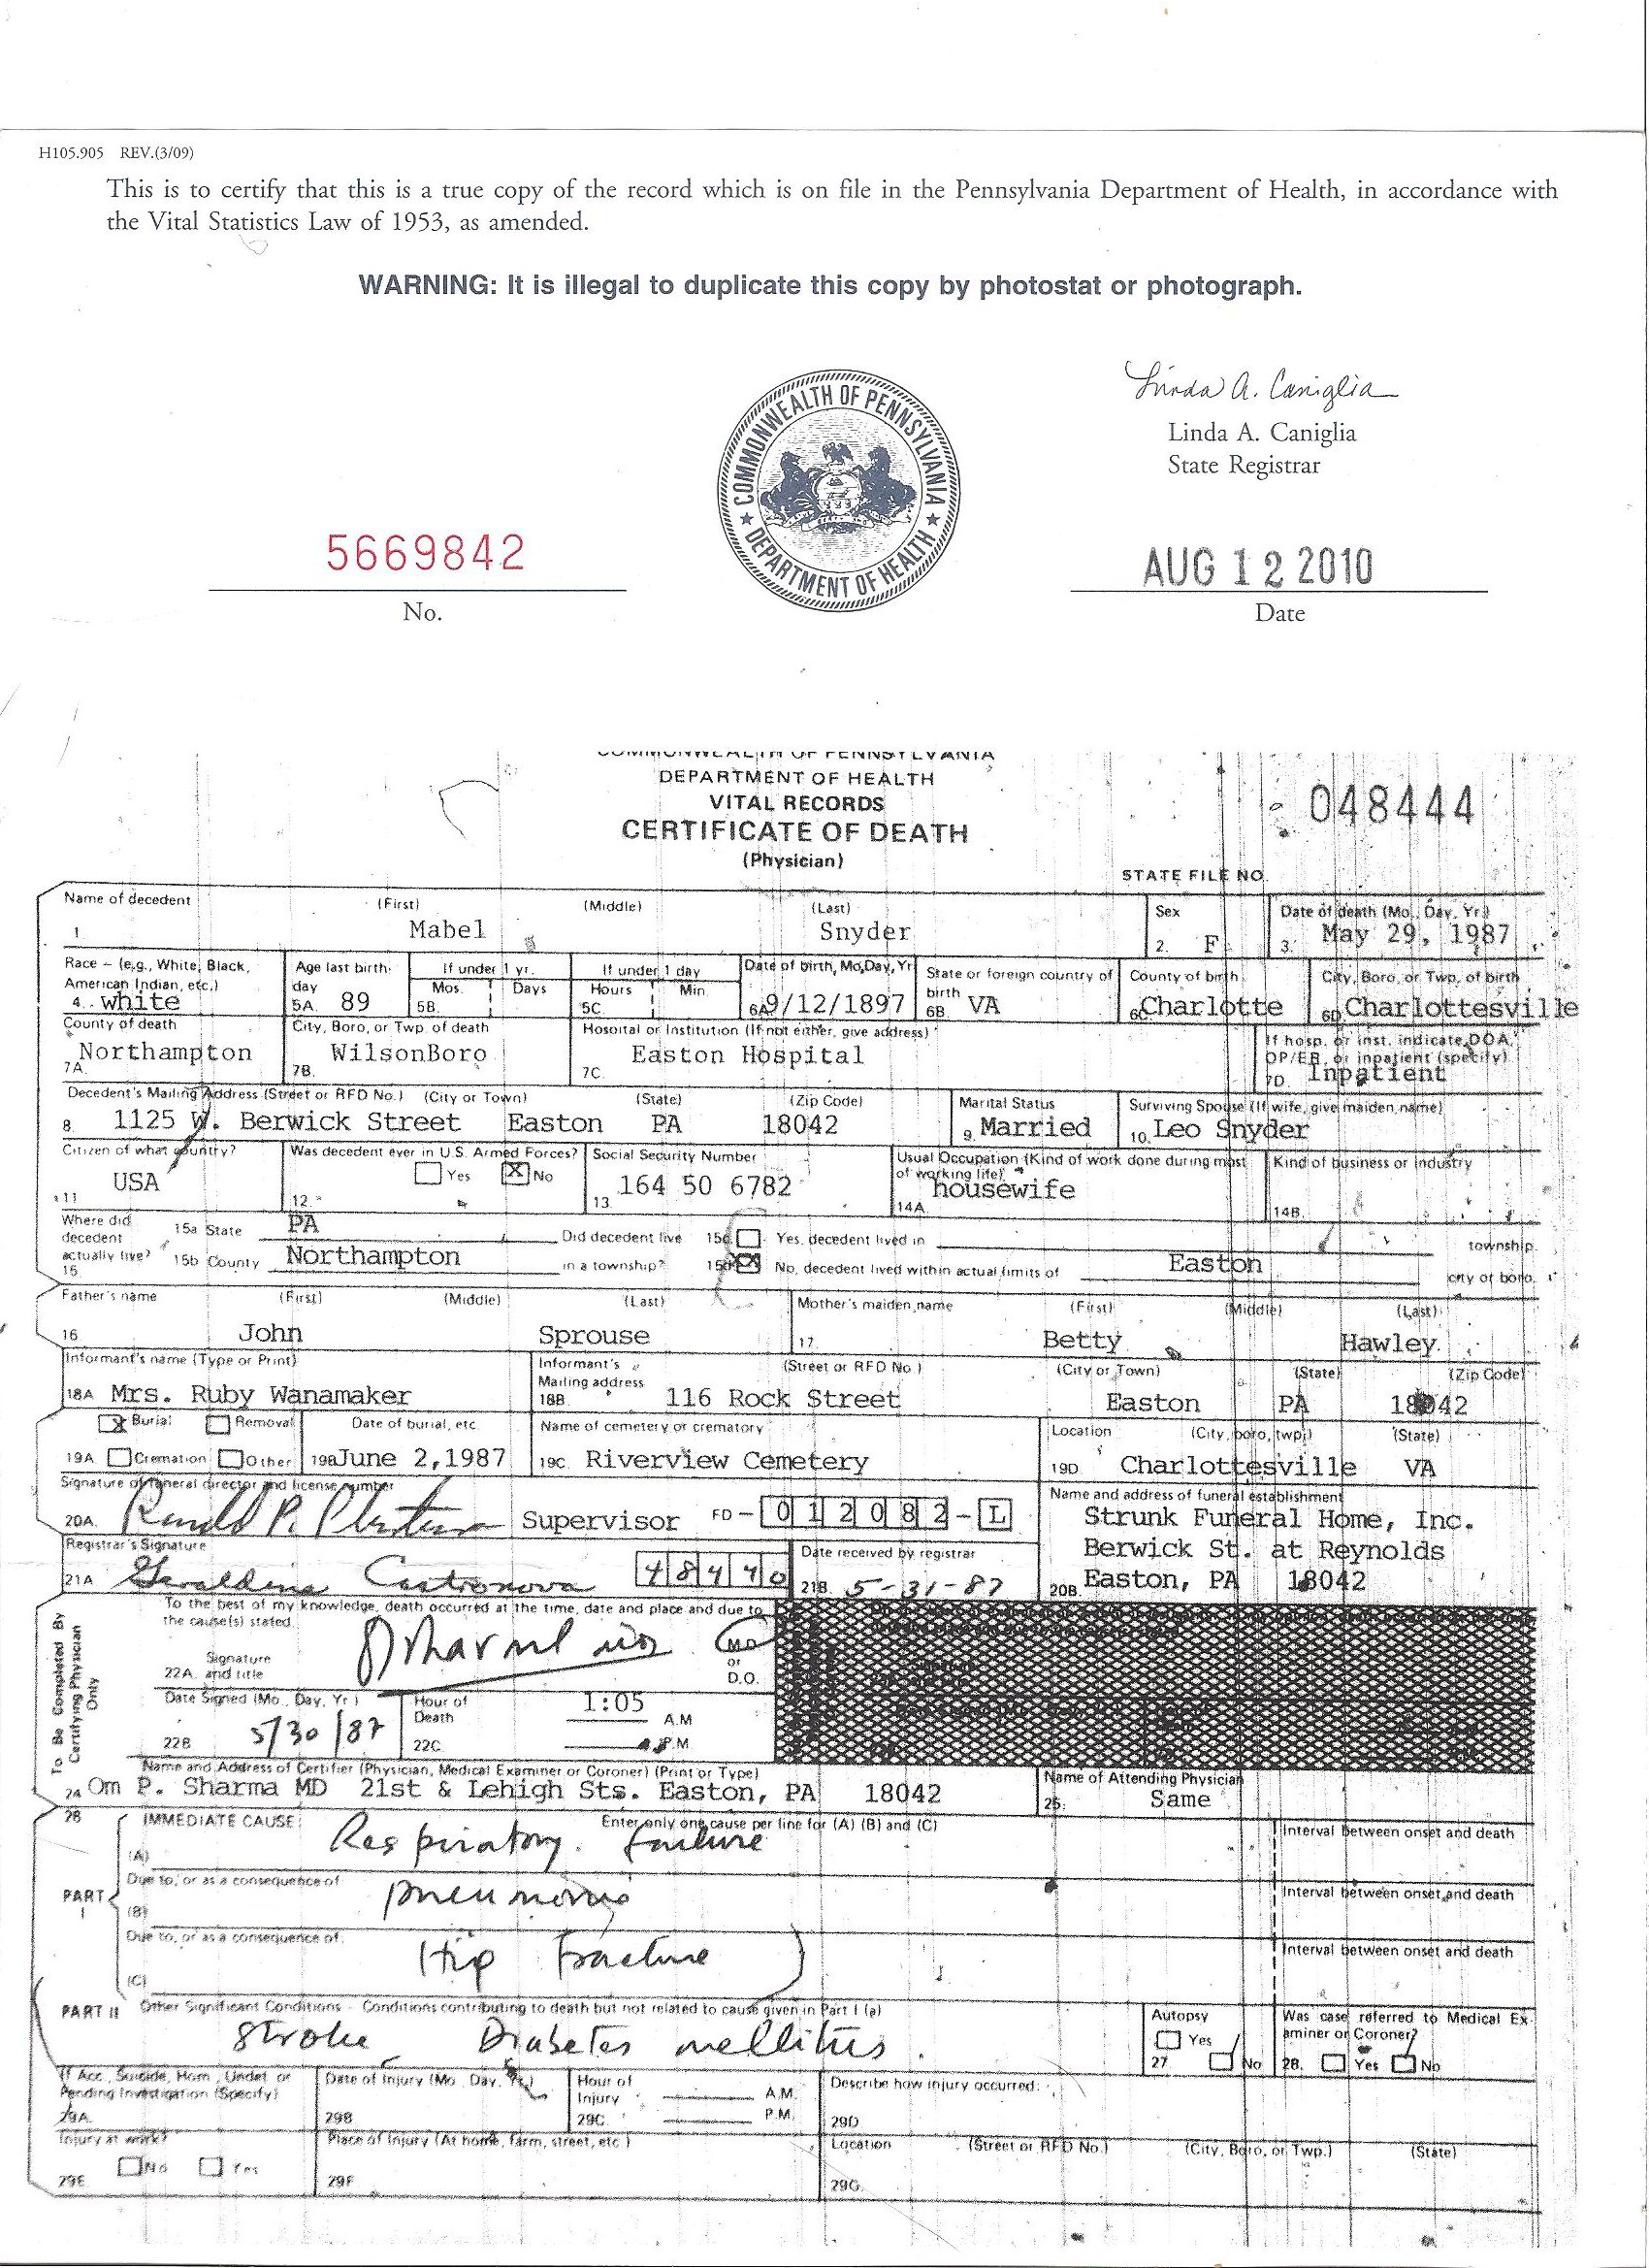 H105.905 REV.(3/09)
This is to certify that this is a true copy of the record which is on file in the Pennsylvania Department of Health, in accordance with
the Vital Statistics Law of 1953, as amended.
WARNING: It is illegal to duplicate this copy by photostat or photograph.
Linda A. Caniglia
Linda A. Caniglia
State Registrar
COMMONWEALTH OF PENNSYLVANIA
DEPARTMENT OF HEALTH
5669842
No.
AUG 12 2010
Date
COMMONWEALTH OF PENNSYLVANIA
DEPARTMENT OF HEALTH
VITAL RECORDS
CERTIFICATE OF DEATH
(Physician)
048444
STATE FILE NO.
Name of decedent (First) (Middle) (Last) Sex Date of death (Mo., Day, Yr.)
1. Mabel Snyder 2. F 3. May 29, 1987
Race – (e.g., White, Black, American Indian, etc.) Age last birthday If under 1 yr. Mos. Days If under 1 day Hours Min. Date of birth, Mo, Day, Yr State or foreign country of birth County of birth City, Boro, or Twp. of birth
4. white 5A 89 5B. 5C. 6A 9/12/1897 6B. VA 6C Charlotte 6D Charlottesville
County of death City, Boro, or Twp. of death Hospital or Institution (If not either, give address) If hosp. or inst. indicate DOA, OP/ER, or inpatient (specify)
7A. Northampton 7B. WilsonBoro 7C. Easton Hospital 7D. Inpatient
Decedent's Mailing Address (Street or RFD No.) (City or Town) (State) (Zip Code) Marital Status Surviving Spouse (If wife, give maiden name)
8. 1125 W. Berwick Street Easton PA 18042 9. Married 10. Leo Snyder
Citizen of what country? Was decedent ever in U.S. Armed Forces? Social Security Number Usual Occupation (Kind of work done during most of working life) Kind of business or industry
11 USA 12. Yes X No 13. 164 50 6782 14A housewife 14B.
Where did decedent actually live? 15a State PA Did decedent live in a township? 15c Yes, decedent lived in township.
15 15b County Northampton 15d No, decedent lived within actual limits of Easton city or boro.
Father's name (First) (Middle) (Last) Mother's maiden name (First) (Middle) (Last)
16 John Sprouse 17. Betty Hawley
Informant's name (Type or Print) Informant's Mailing address (Street or RFD No.) (City or Town) (State) (Zip Code)
18A Mrs. Ruby Wanamaker 18B. 116 Rock Street Easton PA 18042
X Burial Removal Date of burial, etc. Name of cemetery or crematory Location (City, boro, twp.) (State)
19A Cremation Other 19B June 2,1987 19C. Riverview Cemetery 19D Charlottesville VA
Signature of funeral director and license number Name and address of funeral establishment
20A. Supervisor FD – 012082 – L Strunk Funeral Home, Inc.
Registrar's Signature Date received by registrar Berwick St. at Reynolds
21A Geraldine Castronova 48440 21B. 5-31-87 20B Easton, PA 18042
To Be Completed By Certifying Physician Only
To the best of my knowledge, death occurred at the time, date and place and due to the cause(s) stated
22A. Signature and title MD or D.O.
Date Signed (Mo., Day, Yr.) Hour of Death 1:05 A.M
22B 5/30/87 22C P.M
Name and Address of Certifier (Physician, Medical Examiner or Coroner) (Print or Type) Name of Attending Physician
24 Om P. Sharma MD 21st & Lehigh Sts. Easton, PA 18042 25. Same
26 IMMEDIATE CAUSE: Enter only one cause per line for (A) (B) and (C) Interval between onset and death
(A) Respiratory failure
PART I
Due to, or as a consequence of Interval between onset and death
(B) pneumonia
Due to, or as a consequence of Interval between onset and death
(C) Hip fracture
PART II Other Significant Conditions - Conditions contributing to death but not related to cause given in Part I (a) Autopsy Was case referred to Medical Examiner or Coroner?
Stroke Diabetes mellitus. 27 Yes No 28. Yes No
If Acc., Suicide, Hom., Undet. or Pending Investigation (Specify) Date of Injury (Mo., Day, Yr.) Hour of Injury A.M. P.M. Describe how injury occurred:
29A. 29B 29C. 29D
Injury at work? Place of Injury (At home, farm, street, etc.) Location (Street or RFD No.) (City, Boro, or Twp.) (State)
29E No Yes 29F 29G.